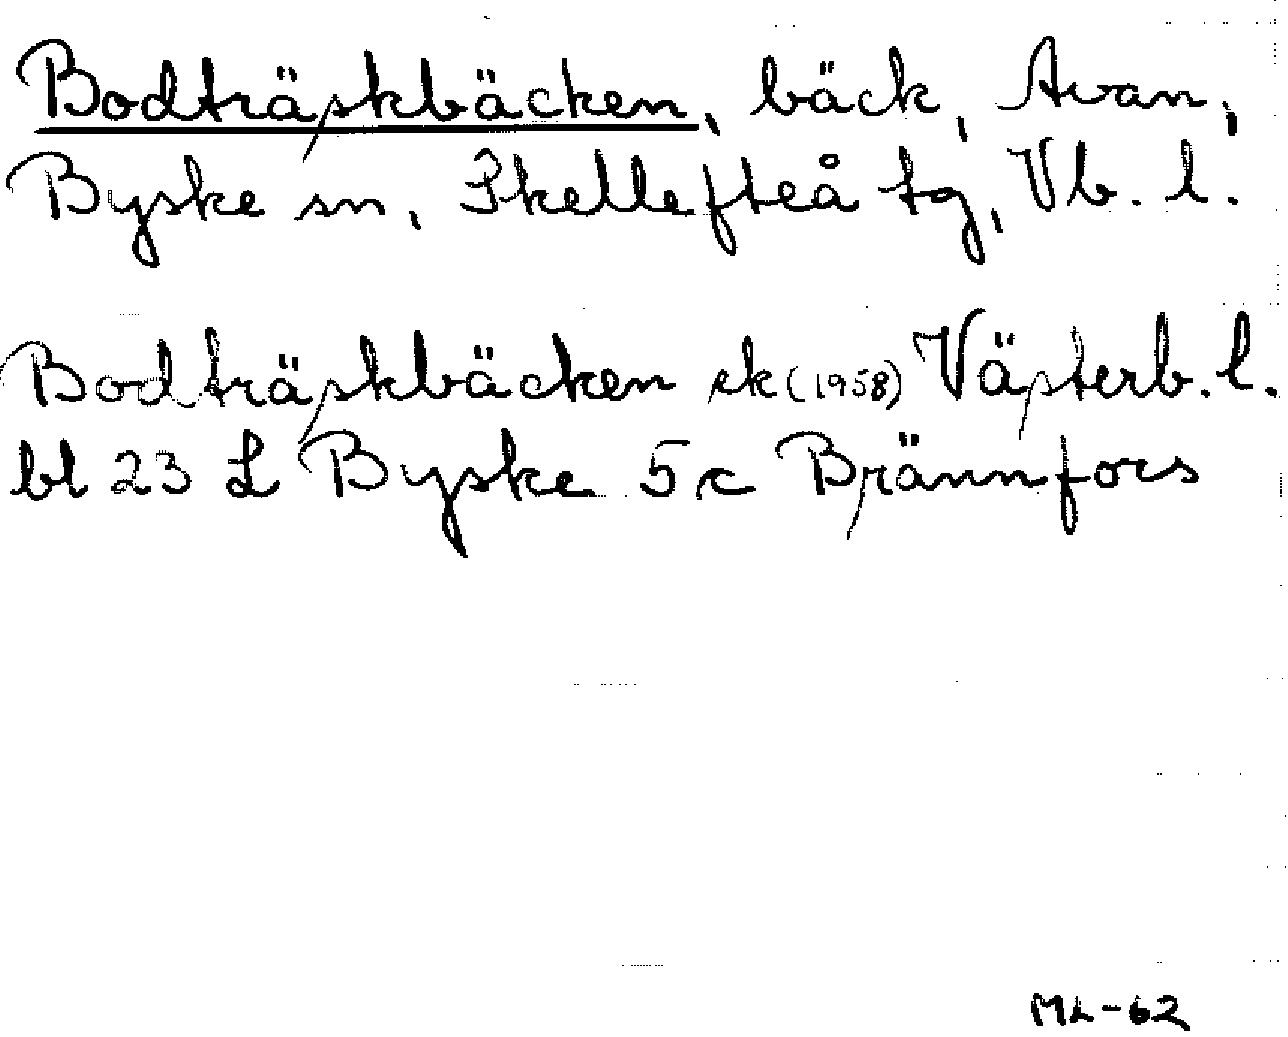 Bodträskbäcken, bäck, Avan,
Byske sn, Skellefteå tg, Vb. l.
Bodträskbäcken ek (1958) Västerb. l.
bl 23 L Byske 5 c Brännfors
ML-62